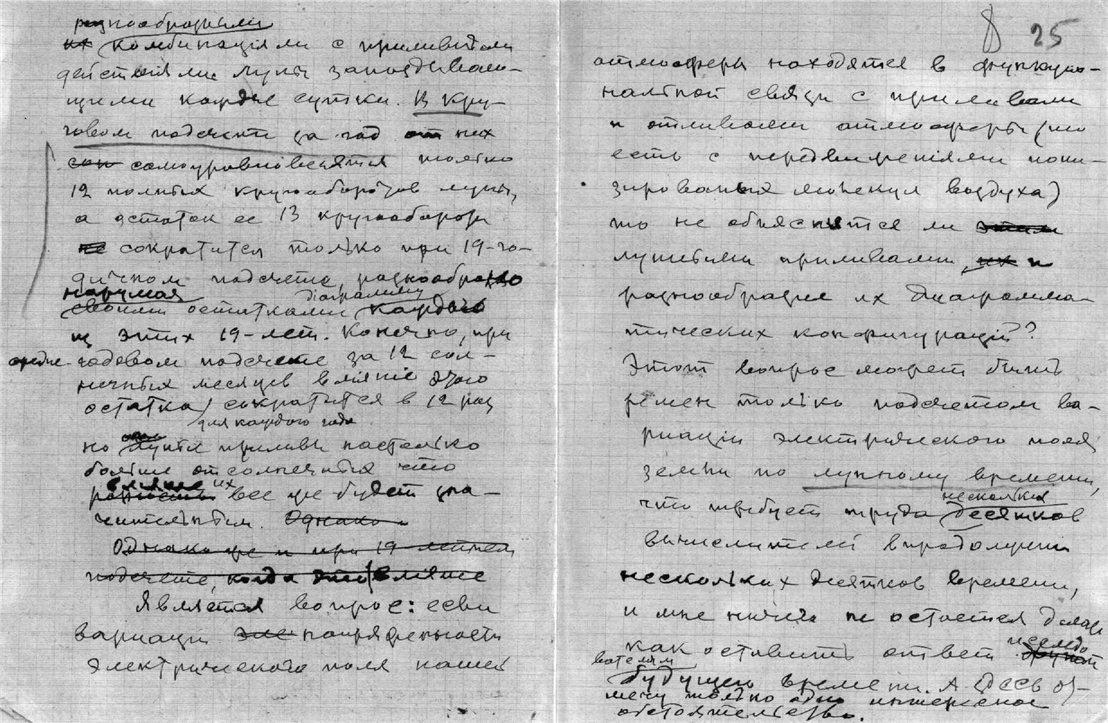 разнообразными
комбинаціями с приливными
действіями луны запаздываю-
щими каждые сутки. В кру-
говом подсчете за год от них
самоуровновесятся только
12 полных кругооборотов луны,
а остаток ее 13 кругооборота
не сократится только при 19-го-
дичном подсчете, разнообразно
нарушая діаграммы
своими остатками каждаго
из этих 19-лет. Конечно, при
средне-годовом подсчете за 12 сол-
нечных месяцев вліяніе этого
остатка сократится в 12 раз
для каждого года
но лунные приливы настолько
больше от солнечных что
вліяніе их
разность все же будет зна-
чительным. Однако
Однако же и при 19-летнем
подсчете, когда это вліяніе
Является вопрос: если
варіаціи эле напряженности
электрического поля нашей
8 25
атмосферы находятся в функціо-
нальной связи с приливами
и отливами атмосферы (то
есть с передвиженіями иони-
зированых молекул воздуха)
то не объяснится ли этим
лунными приливами, их и
разнообразие их диаграмма-
тических конфигурацій?
Этот вопрос может быть
решен только подсчетом ва-
риаціи электрического поля
земли по лунному времени,
что требует труда нескольких десятков
вычислителей в продолжении
нескольких десятков времени,
и мне ничего не остается делать
как оставить ответ исследо-
вателям
будущего времени. А здесь от-
мечу только одно интересное
обстоятельство.